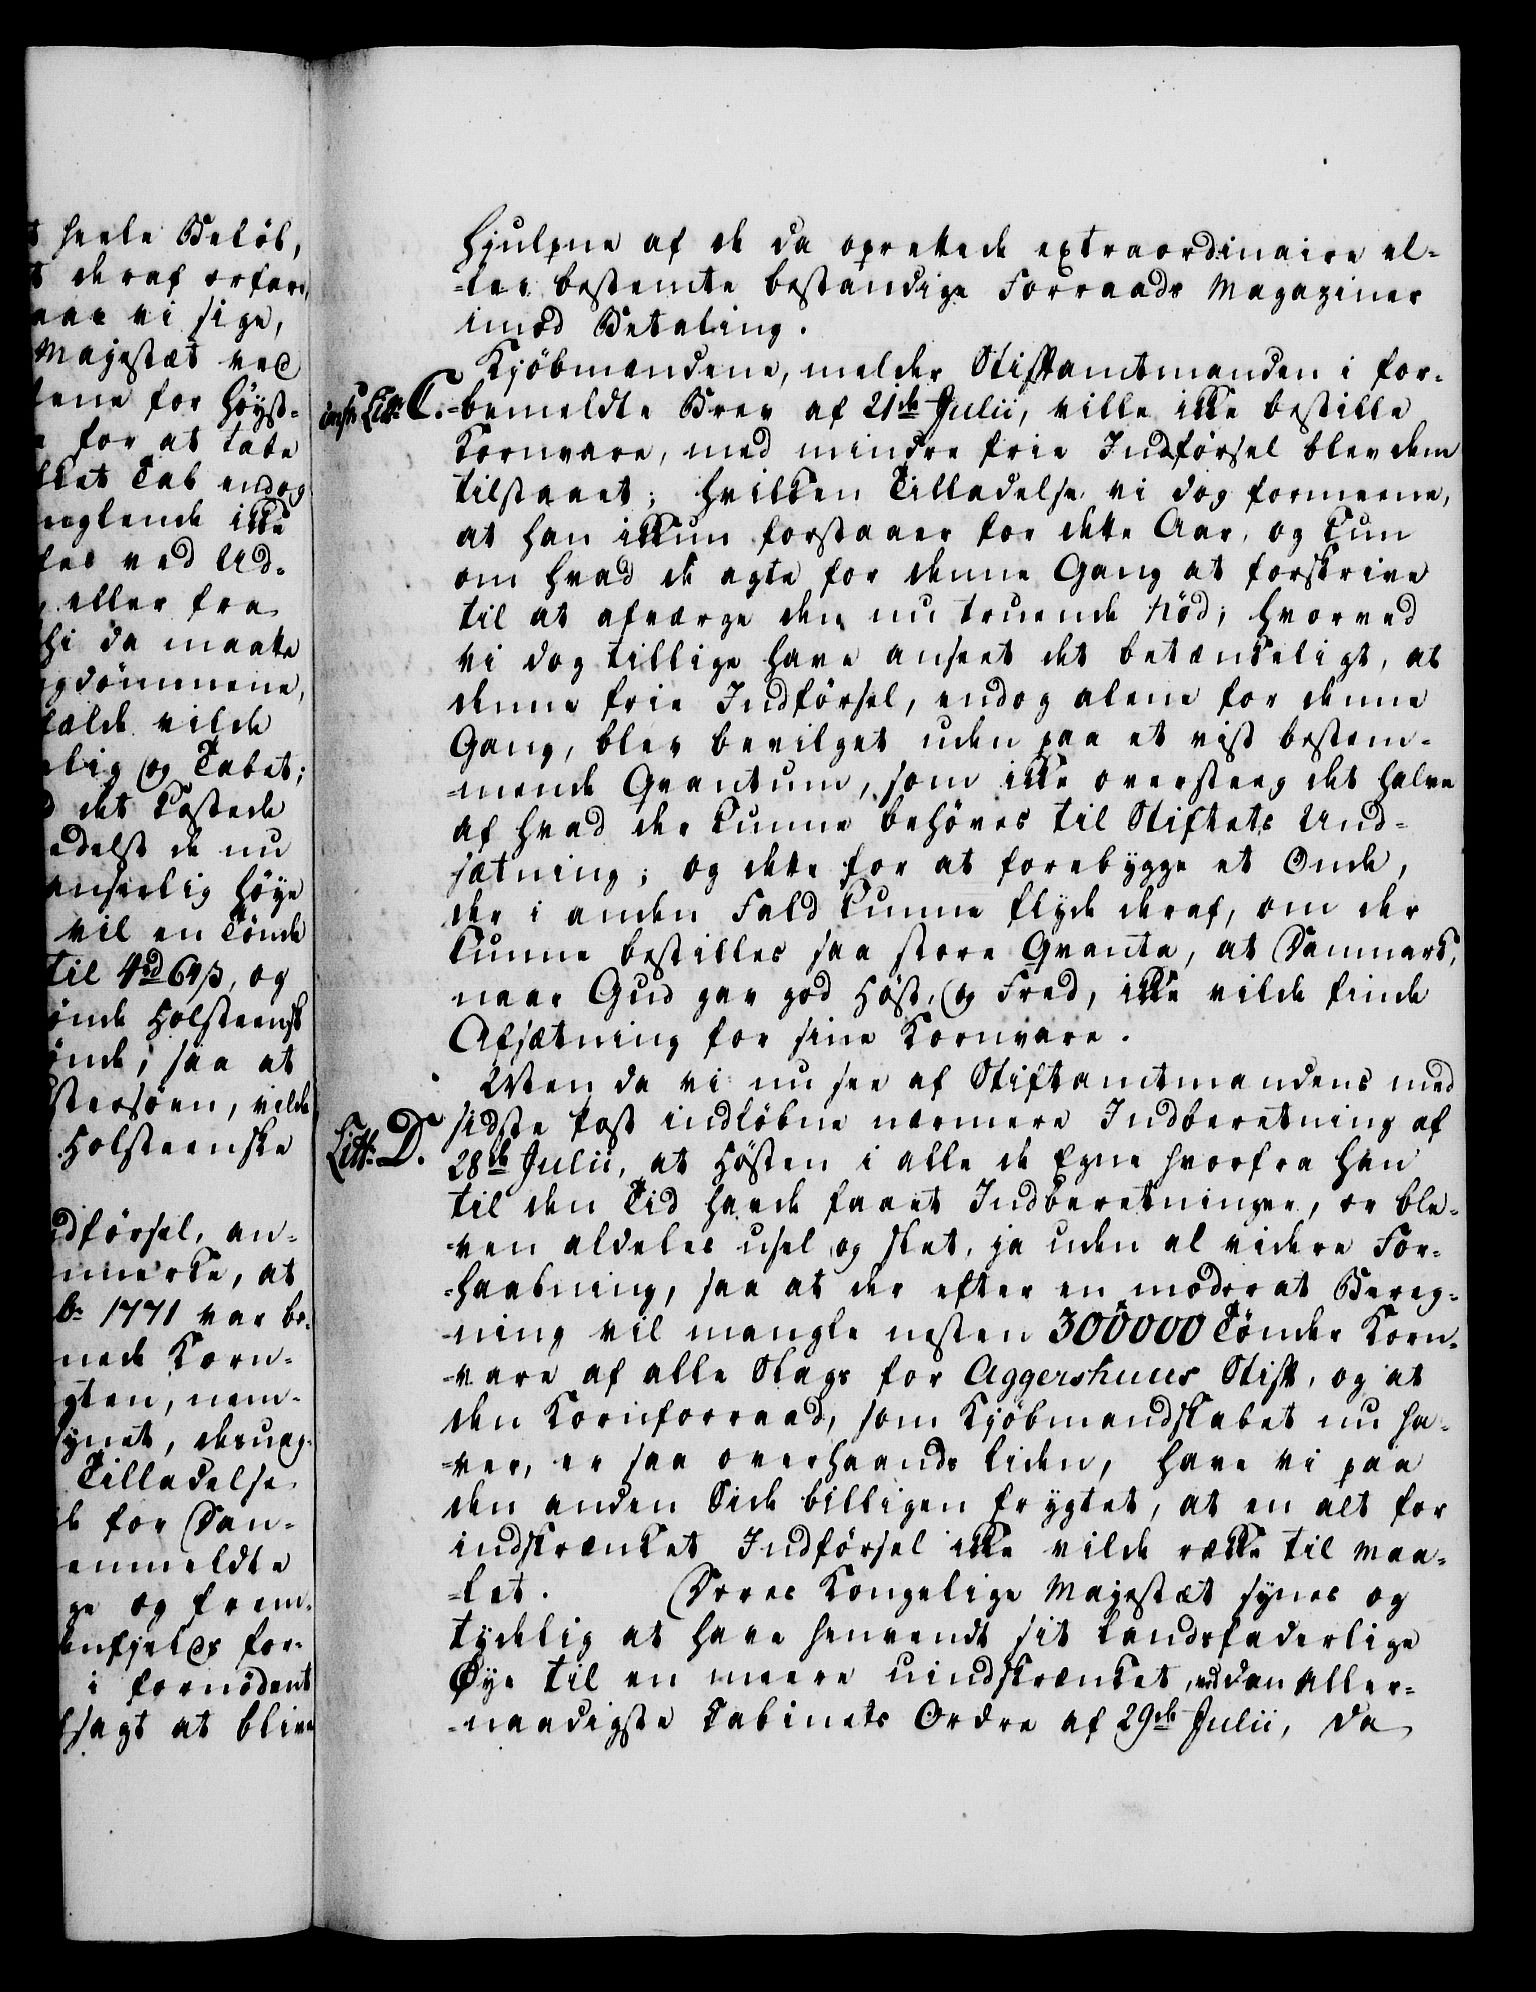 t heele Beløb,
t deraf erfare,
aae vi sige,
Majestæt ved
lene for Høyst-
e for at tabe
lket Tab endog
nglende ikke
les ved Ud-
, eller fra
hi da maatte
gdømmene,
fælde vilde
elig og Tabet;
d det kostede
edelst de nu
anseelig høye
vil en Tønde
til 4rd 64ß, og
ønde Holsteensk
ønde, saa at
stersøen, vilde
Holsteenske
ndførsel, an-
nmerke, at
br 1771 var be-
nede Korn-
gten, nem-
synet, desuag-
Tilladelse
de for Dan-
enmeldte
ge og frem-
enfjelds for-
i fornødent
rsagt at blive
hjulpne af de da oprettede extraordinaire el-
-ler bestemte bestandige Forraads Magaziner
imod Betaling.
Kjøbmændene, melder Stiftamtmanden i for-
Litr. C. -bemeldte Brev af 21de Julii, ville ikke bestille
Kornvare, med mindre frie Indførsel blev dem
tilstaaet; hvilken Tilladelse vi dog formeene,
at han ikkun forstaaer for dette Aar, og kun
om hvad de agte for denne Gang at forskrive
til at afværge den nu truende Nød; hvorved
vi dog tillige have anseet det betænkeligt, at
denne frie Indførsel, endog alene for denne
Gang, blev bevilget uden paa et vist bestem-
-mende Qvantum, som ikke oversteeg det halve
af hvad der kunne behøves til Stiftets Und-
sætning; og dette for at forebygge et Onde,
der i anden Fald kunne flyde deraf, om der
kunne bestilles saa store Qvanta, at Danmark,
naar Gud gav god Høst, og Fred, ikke vilde finde
Afsætning for sine Kornvare.
Men da vi nu see af Stiftamtmandens med
sidste Post indløbne nærmere Indberetning af
Litr. D. 28de Julii, at Høsten i alle de Egne hvorfra han
til den Tid havde faaet Indberetninger, er ble-
-ven aldeles usel og slet, ja uden al videre For-
-haabning, saa at der efter en moderat Bereg-
-ning vil mangle nesten 300000 Tønder Korn-
-vare af alle Slags for Aggershuus Stift, og at
den Kornforraad, som Kjøbmandskabet nu ha-
-ver, er saa overhaands liden, have vi paa
den anden Side billigen frygtet, at en alt for
indskrænket Indførsel ikke vilde række til Maa-
-let. Deres Kongelige Majestæt synes og
tydelig at have henvendt sit landsfaderlige
Øye til en meere uindskrænket, ved den Aller-
-naadigste Cabinets Ordre af 29de Julii, da